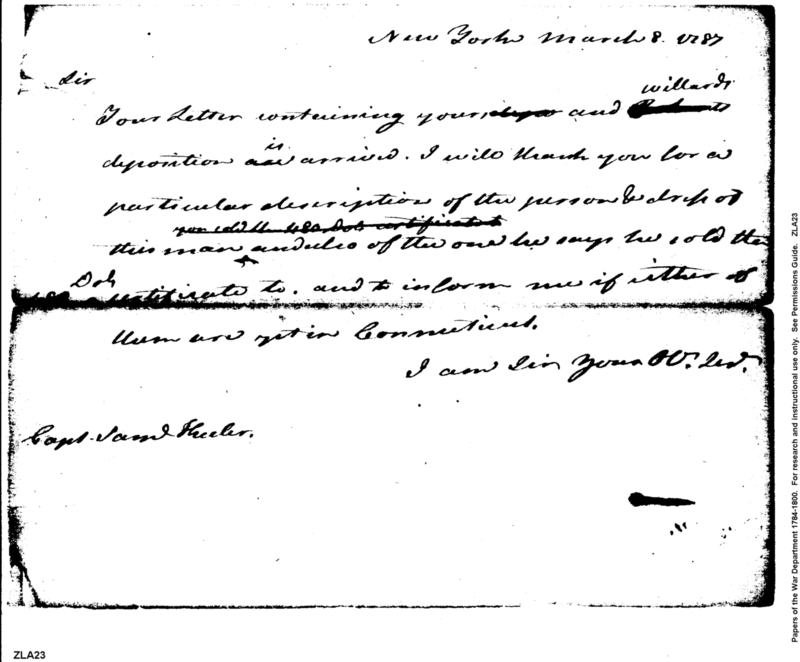 New York March 8. 1787
Sir
willards
Your Letter containing yours, and
is
deposition are arrived. I will thank you for a
particular description of the person & dress of
you sold the 480 Dols certificate to
this man and also of the one he says he sold the
Dols
480 certificate to. and to inform me if either of
them are yet in Connecticut.
I am Sir Your Ob. Sert.
Capt. Saml Keeler.
ZLA23
Papers of the War Department 1784-1800. For research and instructional use only. See Permissions Guide. ZLA23